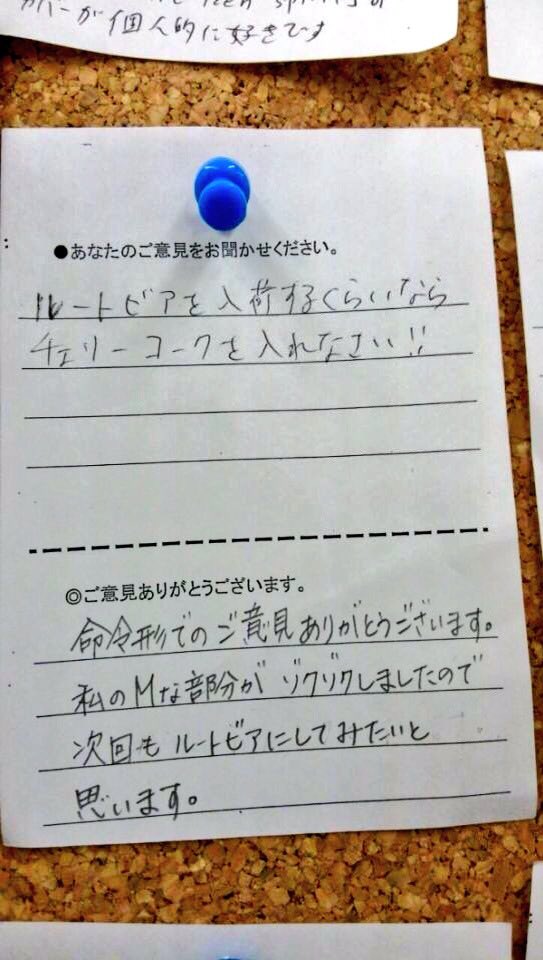 カバーが個人的に好きです
●あなたのご意見をお聞かせください。
ルートビアを入荷するくらいなら
チェリーコークを入れなさい!!
◎ご意見ありがとうございます。
命令形でのご意見ありがとうございます。
私のMな部分がゾクゾクしましたので
次回もルートビアにしてみたいと
思います。